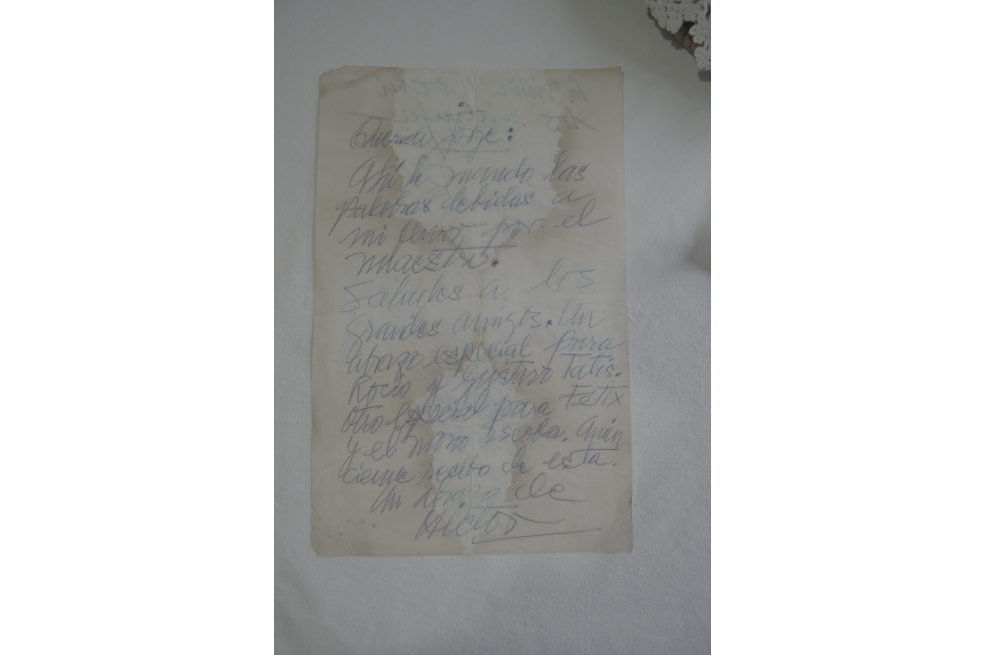 Querido Jorge:
Ahí le mando las
palabras debidas a
mi fervor por el
maestro.
Saludos a los
grandes amigos. Un
abrazo especial para
Rocío y Gustavo Tatis.
Otro especial para Félix
y el mono Escobar.
recibo de esta.
Un abrazo de
Héctor